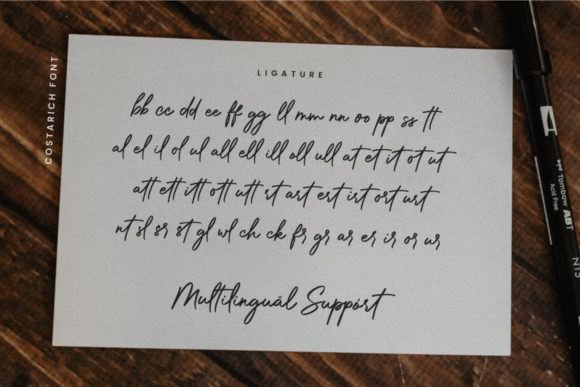 COSTARICH FONT
LIGATURE
bb cc dd ee ff gg ll mm nn oo pp ss tt
al el il ol ul all ell ill oll ull at et it ot ut
att ett itt ott utt rt art ert irt ort urt
nt sl sr st gl wl ch ck fr gr ar er ir or ur
Multilinguál Suppórt
Tombow ABT
Acid Free
N15